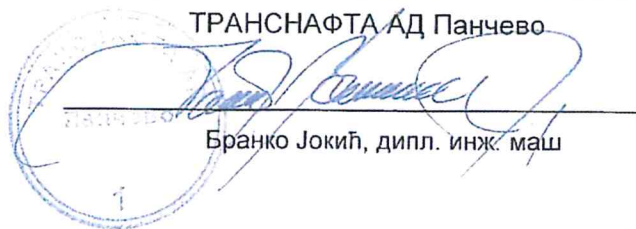 ТРАНСНАФТА АД Панчево
ПАНЧЕВО
Бранко Јокић, дипл. инж. маш
1